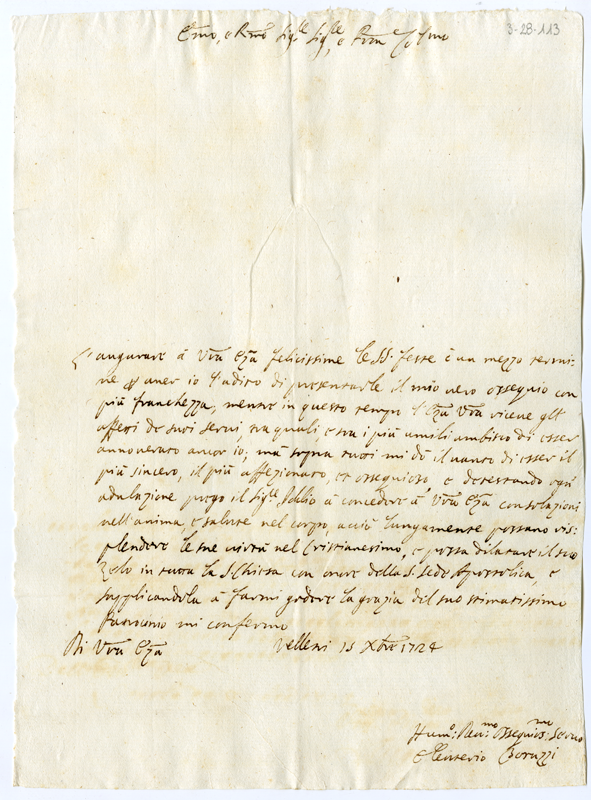 3-28-113
Emo, e Rmo Sigre Sigre, e Prne Colmo
L'augurare à Vra Eza felicissime le SS. feste è un mezzo termi:
ne p aver io l'adito di presentarle il mio vero ossequio con
più franchezza, mentre in questo tempo l'Eza Vra riceve gli
affetti de suoi servi, tra quali, e tra i più umili ambisco di esser
annoverato ancor io, mà sopra tutti mi dò il vanto di esser il
più sincero, il più affezionato, et ossequioso, e detestando ogni
adulazione prego il Sigre Iddio à concedere à Vra Eza consolazioni
nell'anima, e salute nel corpo, acciò lungamente possano ris:
plendere le sue virtù nel Cristianesimo, e possa dilatare il suo
Zelo in tutta la S. Chiesa con onore della S. Sede Apostolica, e
supplicandola à farmi godere la grazia del suo stimatissimo
Patrocinio mi confermo
Di Vra Eza Velletri 15 Xbre 1724
Humo: Devmo Ossequiosmo: Servo
Eleuterio Borazzi